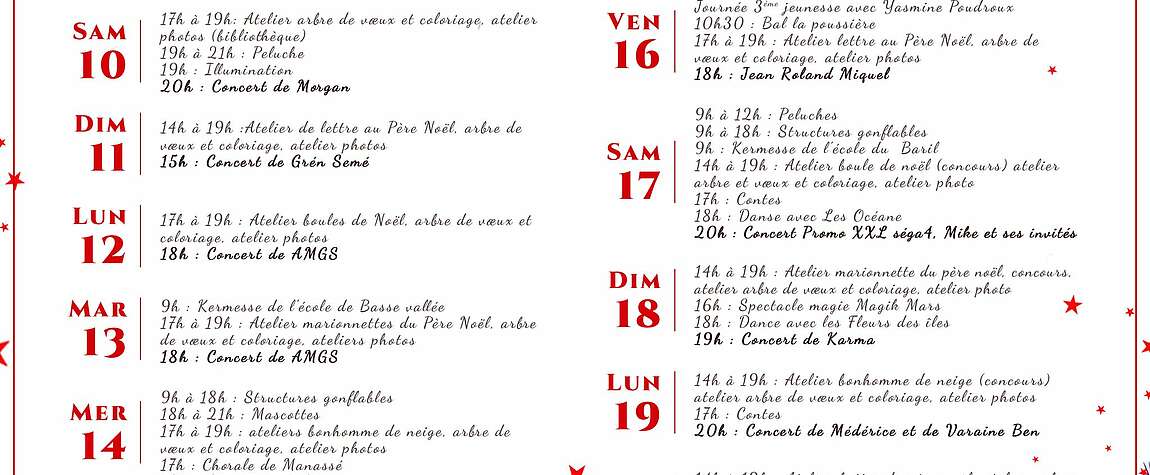 SAM
10
17h à 19h: Atelier arbre de vœux et coloriage, atelier
photos (bibliothèque)
19h à 21h : Peluche
19h : Illumination
20h : Concert de Morgan
DIM
11
14h à 19h :Atelier de lettre au Père Noël, arbre de
vœux et coloriage, atelier photos
15h : Concert de Grén Semé
LUN
12
17h à 19h : Atelier boules de Noël, arbre de vœux et
coloriage, atelier photos
18h : Concert de AMGS
MAR
13
9h : Kermesse de l'école de Basse vallée
17h à 19h : Atelier marionnettes du Père Noël, arbre
de vœux et coloriage, ateliers photos
18h : Concert de AMGS
MER
14
9h à 18h : Structures gonflables
18h à 21h : Mascottes
17h à 19h : ateliers bonhomme de neige, arbre de
vœux et coloriage, atelier photos
17h : Chorale de Manassé
VEN
16
Journée 3ème jeunesse avec Yasmine Poudroux
10h30 : Bal la poussière
17h à 19h : Atelier lettre au Père Noël, arbre de
vœux et coloriage, atelier photos
18h : Jean Roland Miquel
SAM
17
9h à 12h : Peluches
9h à 18h : Structures gonflables
9h : Kermesse de l'école du Baril
14h à 19h : Atelier boule de noël (concours) atelier
arbre et vœux et coloriage, atelier photo
17h : Contes
18h : Danse avec Les Océane
20h : Concert Promo XXL séga4, Mike et ses invités
DIM
18
14h à 19h : Atelier marionnette du père noël, concours,
atelier arbre de vœux et coloriage, atelier photo
16h : Spectacle magie Magik Mars
18h : Dance avec les Fleurs des îles
19h : Concert de Karma
LUN
19
14h à 19h : Atelier bonhomme de neige (concours)
atelier arbre de vœux et coloriage, atelier photos
17h : Contes
20h : Concert de Médérice et de Varaine Ben